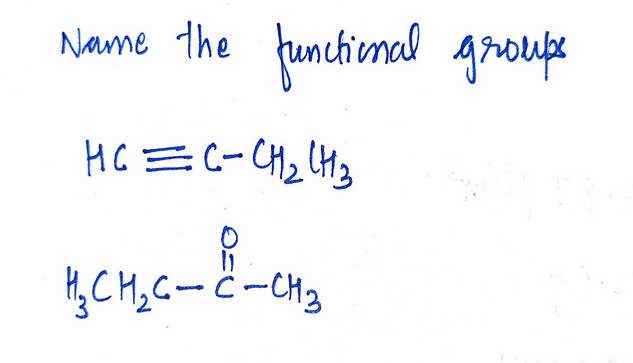 Name the functional groups
HC≡C-CH₂CH₃
O
H₃CH₂C-C-CH₃